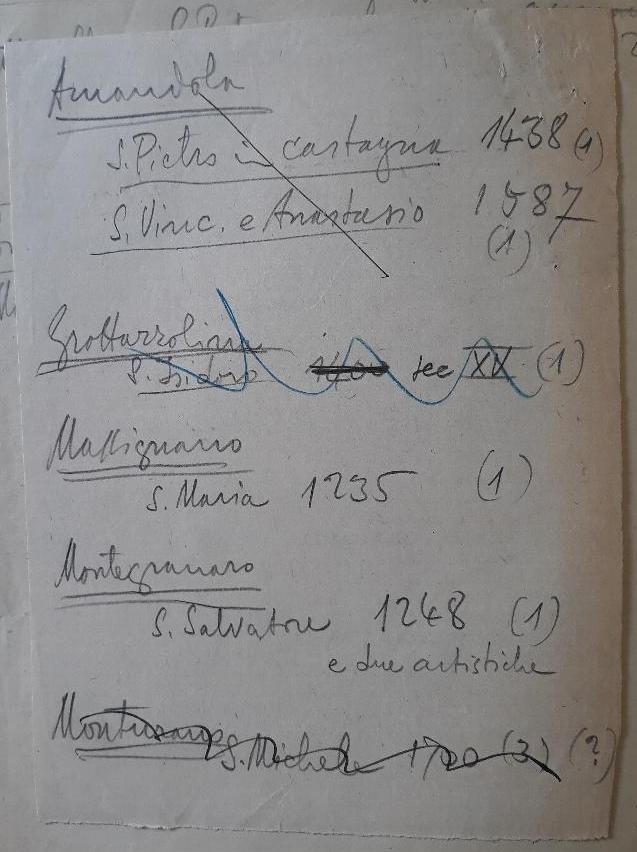 Amandola
S. Pietro in castagna 1438 (1)
S. Vinc. e Anastasio 1587
(1)
Grottazzolina
S. Isidoro 1400 sec XV (1)
Massignano
S. Maria 1235 (1)
Montegranaro
S. Salvatore 1248 (1)
e due artistiche
S. Michele (3) (?)